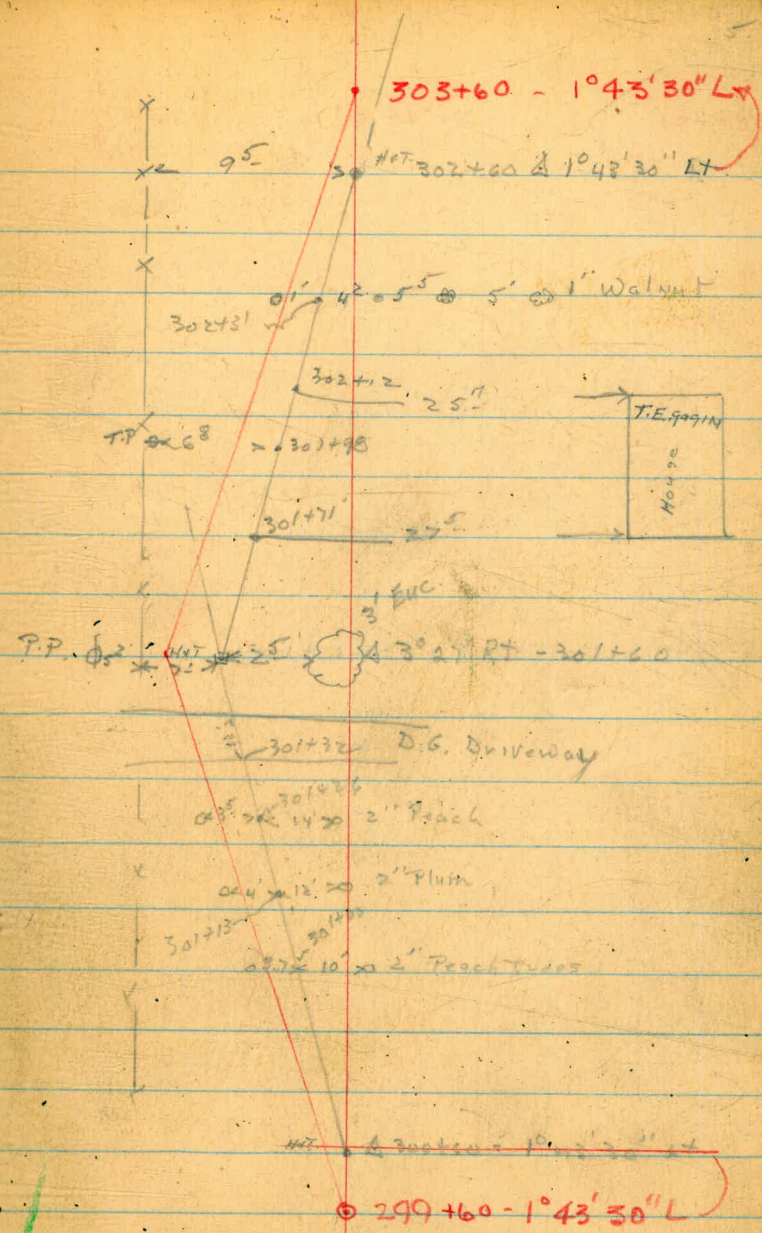 5
303+60 - 1°43'30" L
9⁵ H&T 302+60 Δ 1°43'30" Lt
1' 4² 5⁵ 5' 1" Walnut
302+31
302+12
25⁷
T.P. 6⁸ 301+98
T.E. 
House
301+71
27⁵
3' Euc.
P.P. 5² H&T 2⁵ Δ 3°27' Rt - 301+60
301+32 D.G. Driveway
3⁵ 14' 2" Peach
4' 12' 2" Plum
301+13
301+00
10' 2" Peach trees
H&T Δ 300+60 - 1°43'30" Lt
299+60 - 1°43'30" L